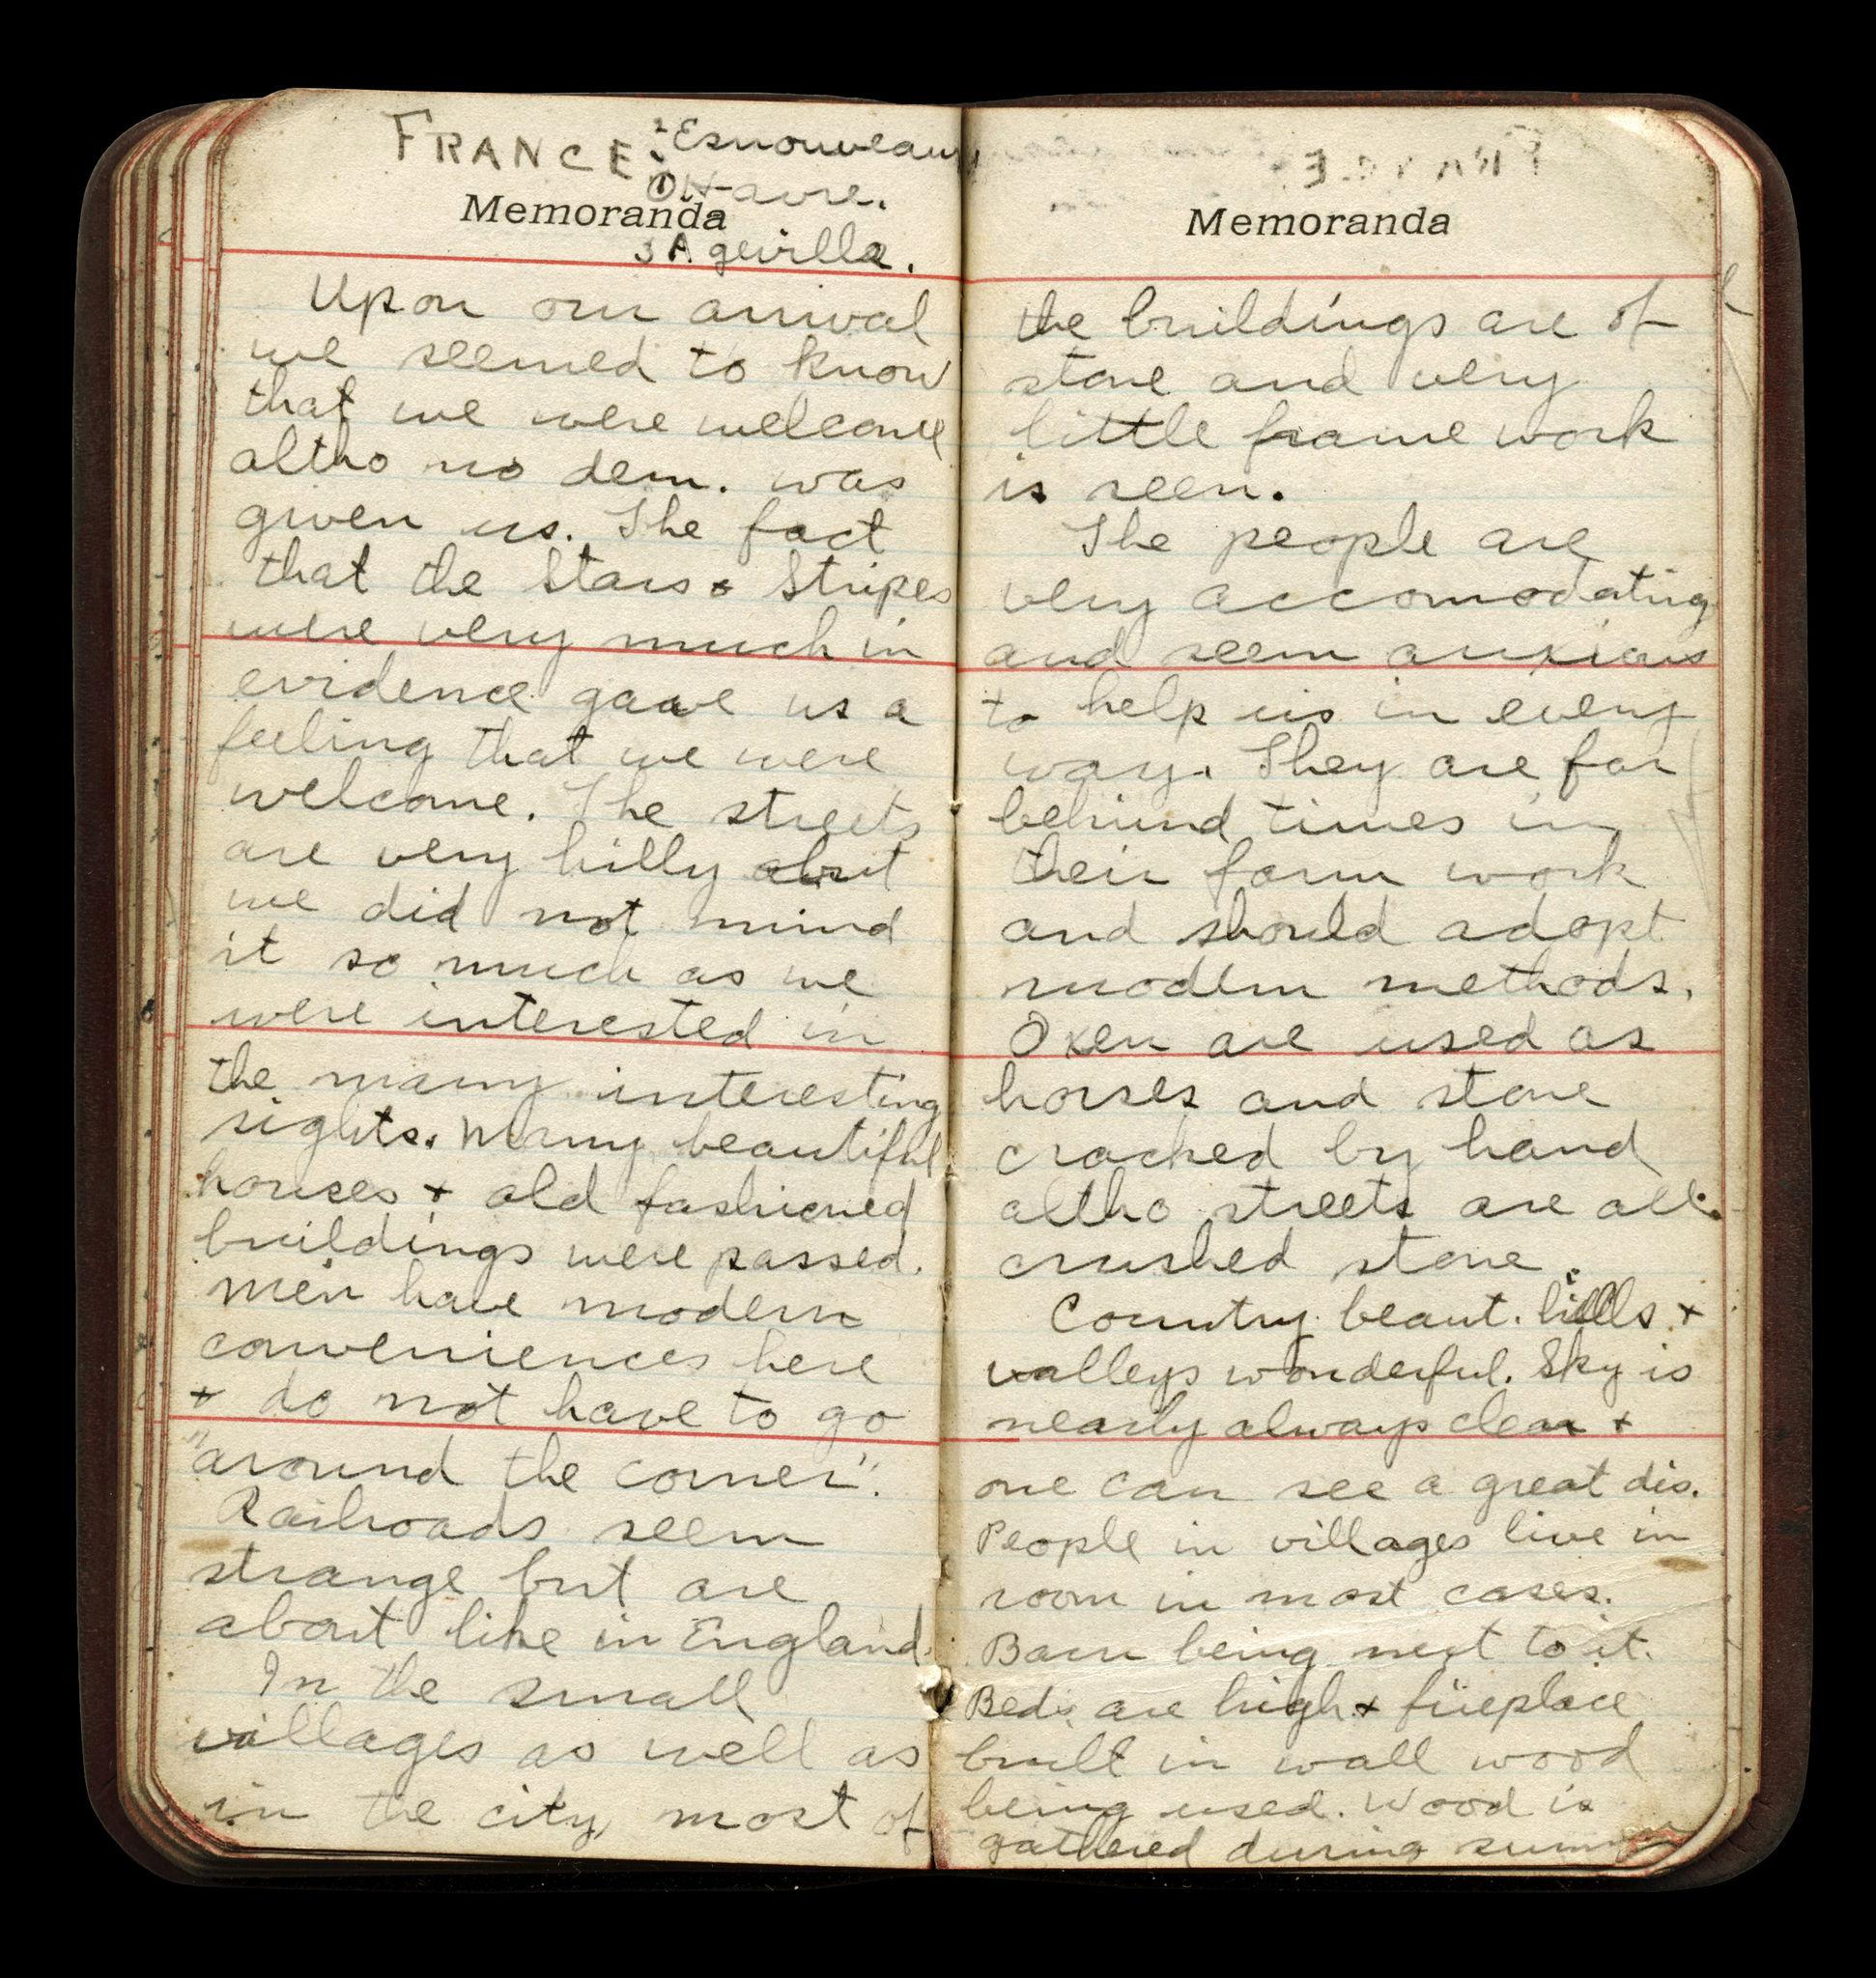 FRANCE: 2 Esnouveau
① Havre.
Memoranda
3 Ageville.
Upon our arrival
we seemed to know
that we were welcome
altho no dem. was
given us. The fact
that the Stars & Stripes
were very much in
evidence gave us a
feeling that we were
welcome. The streets
are very hilly but
we did not mind
it so much as we
were interested in
the many interesting
sights. Many beautiful
houses + old fashioned
buildings were passed.
Men have modern
conveniences here
+ do not have to go
"around the corner".
Railroads seem
strange but are
about like in England.
In the small
villages as well as
in the city, most of
Memoranda
the buildings are of
stone and very
little frame work
is seen.
The people are
very accomodating
and seem anxious
to help us in every
way. They are far
behind times in
their farm work
and should adopt
modern methods.
Oxen are used as
horses and stone
cracked by hand
altho streets are all
crushed stone.
Country beaut. hills +
valleys wonderful. Sky is
nearly always clear +
one can see a great dis.
People in villages live in
room in most cases.
Barn being next to it.
Beds are high + fireplace
built in wall wood
being used. Wood is
gathered during summer